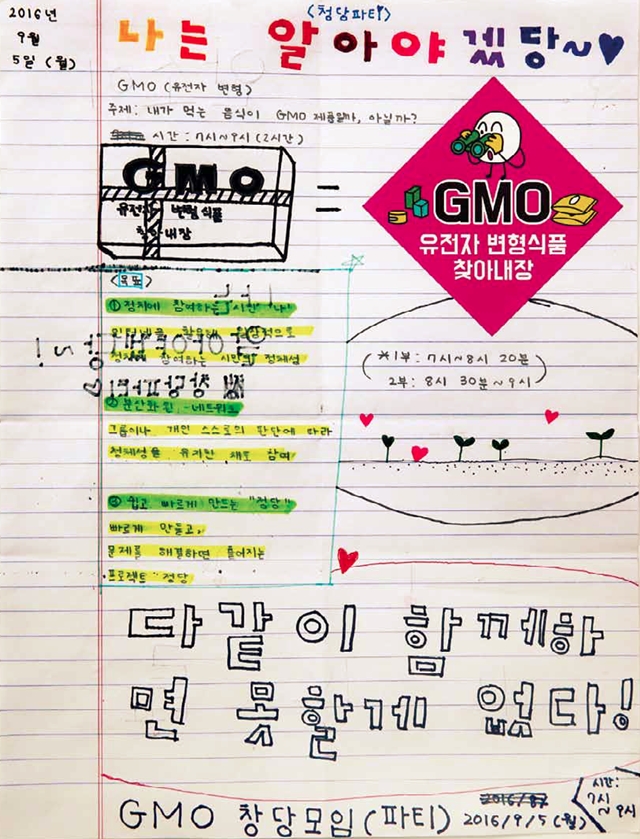 2016년
9월
5일 (월)
<청당파티>
나는 알아야겠당~♥
GMO (유전자 변형)
주제: 내가 먹는 음식이 GMO 제품일까, 아닐까?
시간 : 7시~9시 (2시간)
GMO
유전자 변형식품
찾아내장
=
GMO
유전자 변형식품
찾아내장
<목표>
① 정치에 참여하는 "시민"나
인터넷을 활용해 일상적으로
정치에 참여하는 시민의 정체성
② 분산화된 -네트워크
그룹이나 개인 스스로의 판단에 따라
정체성을 유지한 채로 참여
③ 쉽고 빠르게 만드는 "정당"
빠르게 만들고,
문제를 해결하면 흩어지는
프로젝트 정당
(*1부: 7시~8시 20분
2부: 8시 30분~9시)
다같이 함께하
면 못할게 없다!
GMO 창당모임 (파티) 2016/9/5 (월)
시간:
7시
~9시